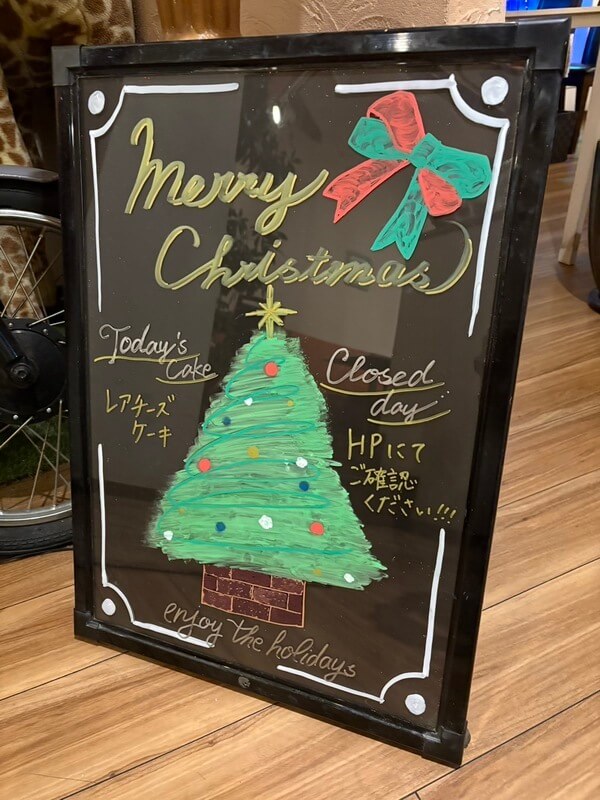 Merry
Christmas
Today's
Cake
レアチーズ
ケーキ
Closed
day
HPにて
ご確認
ください!!!
enjoy the holidays